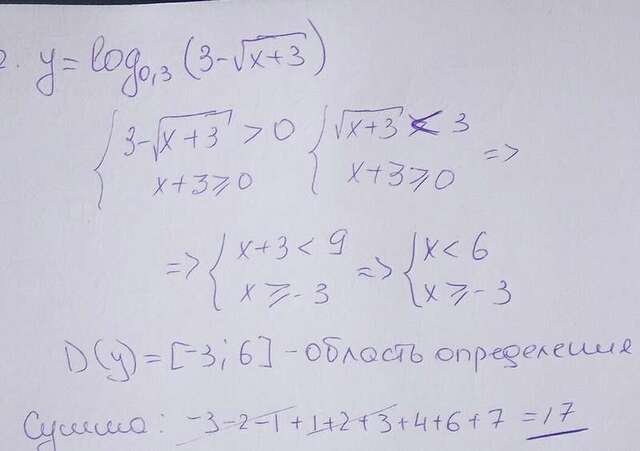 2. y = log₀,₃ (3-√(x+3))
{ 3-√(x+3) > 0 { √(x+3) < 3
x+3 ⩾ 0 x+3 ⩾ 0 =>
=> { x+3 < 9 => { x < 6
x ⩾ -3 x ⩾ -3
D(y) = [-3; 6] - область определения
Сумма: -3-2-1+1+2+3+4+6+7 = 17